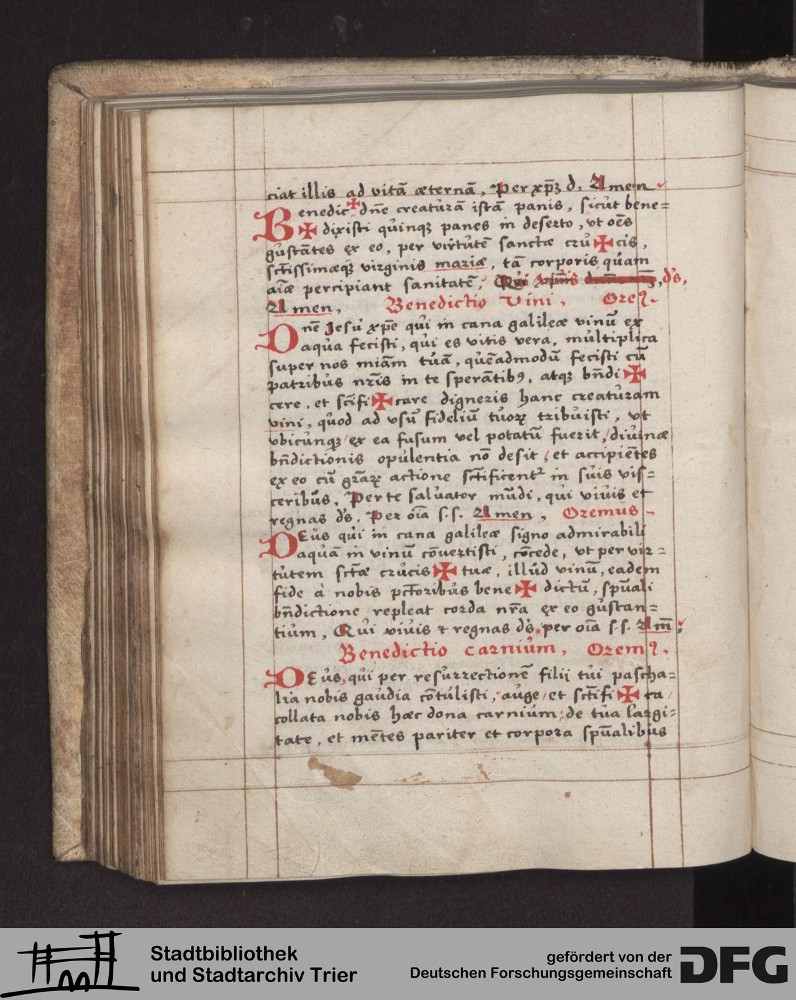 ciat illis ad vitā æternā, Per xp̄ꝫ d. Amen
Benedic ✠ dn̄e creatůrā istā panis, sicůt bene=
✠ dixisti qůinqꝫ panes in deserto, vt oēs
gůstātes ex eo, per virtůtē sanctæ crů ✠ cis,
sctīssimæqꝫ virginis mariæ, tā corporis qůam
aīæ percipiant sanitatē, Qůi d's,
Amen, Benedictio Vini, Oreꝰ.
Dn̄e Jesů xp̄e qůi in cana galileæ vinů̄ ex
aqůa fecisti, qůi es vitis vera, můltiplica
super nos miām tůā, qůēadmodů̄ fecisti ců̄
patribůs nr̄is in te sperātibꝰ, atqꝫ bn̄di ✠
cere, et sctīfi ✠ care digneris hanc creatůram
vini, qůod ad vsů̄ fideliů̄ tůoꝝ tribůisti, vt
vbicůnqꝫ ex ea fusum vel potatů̄ fuerit, diůinæ
bn̄dictionis opůlentia nō desit, et accipiētes
ex eo ců̄ gr̄aꝝ actione sctīficent᷑ in sůis vis=
ceribůs, Per te salůator můdi, qůi viůis et
regnas d's, Per oīa s.s. Amen, Oremůs.
Deůs qůi in cana galileæ signo admirabili
aqůā in vinů̄ cōůertisti, cōcede, vt per vir=
tůtem sctæ crůcis ✠ tůæ, illůd vinů̄, eadem
fide à nobis pctōribůs bene ✠ dictů̄, spůali
bn̄dictione repleat corda nr̄a ex eo gůstan=
tiům, Qůi viůis ⁊ regnas d's, per oīa s.s. Am̄:
Benedictio carniům, Oremꝰ.
Deůs, qůi per resůrrectionē filij tůi pascha=
lia nobis gaůdia cōtůlisti, aůge, et sctīfi ✠ ca
collata nobis hæc dona carniům, de tůa largi=
tate, et mētes pariter et corpora spůalibůs
Stadtbibliothek
und Stadtarchiv Trier
gefördert von der
Deutschen Forschungsgemeinschaft
DFG